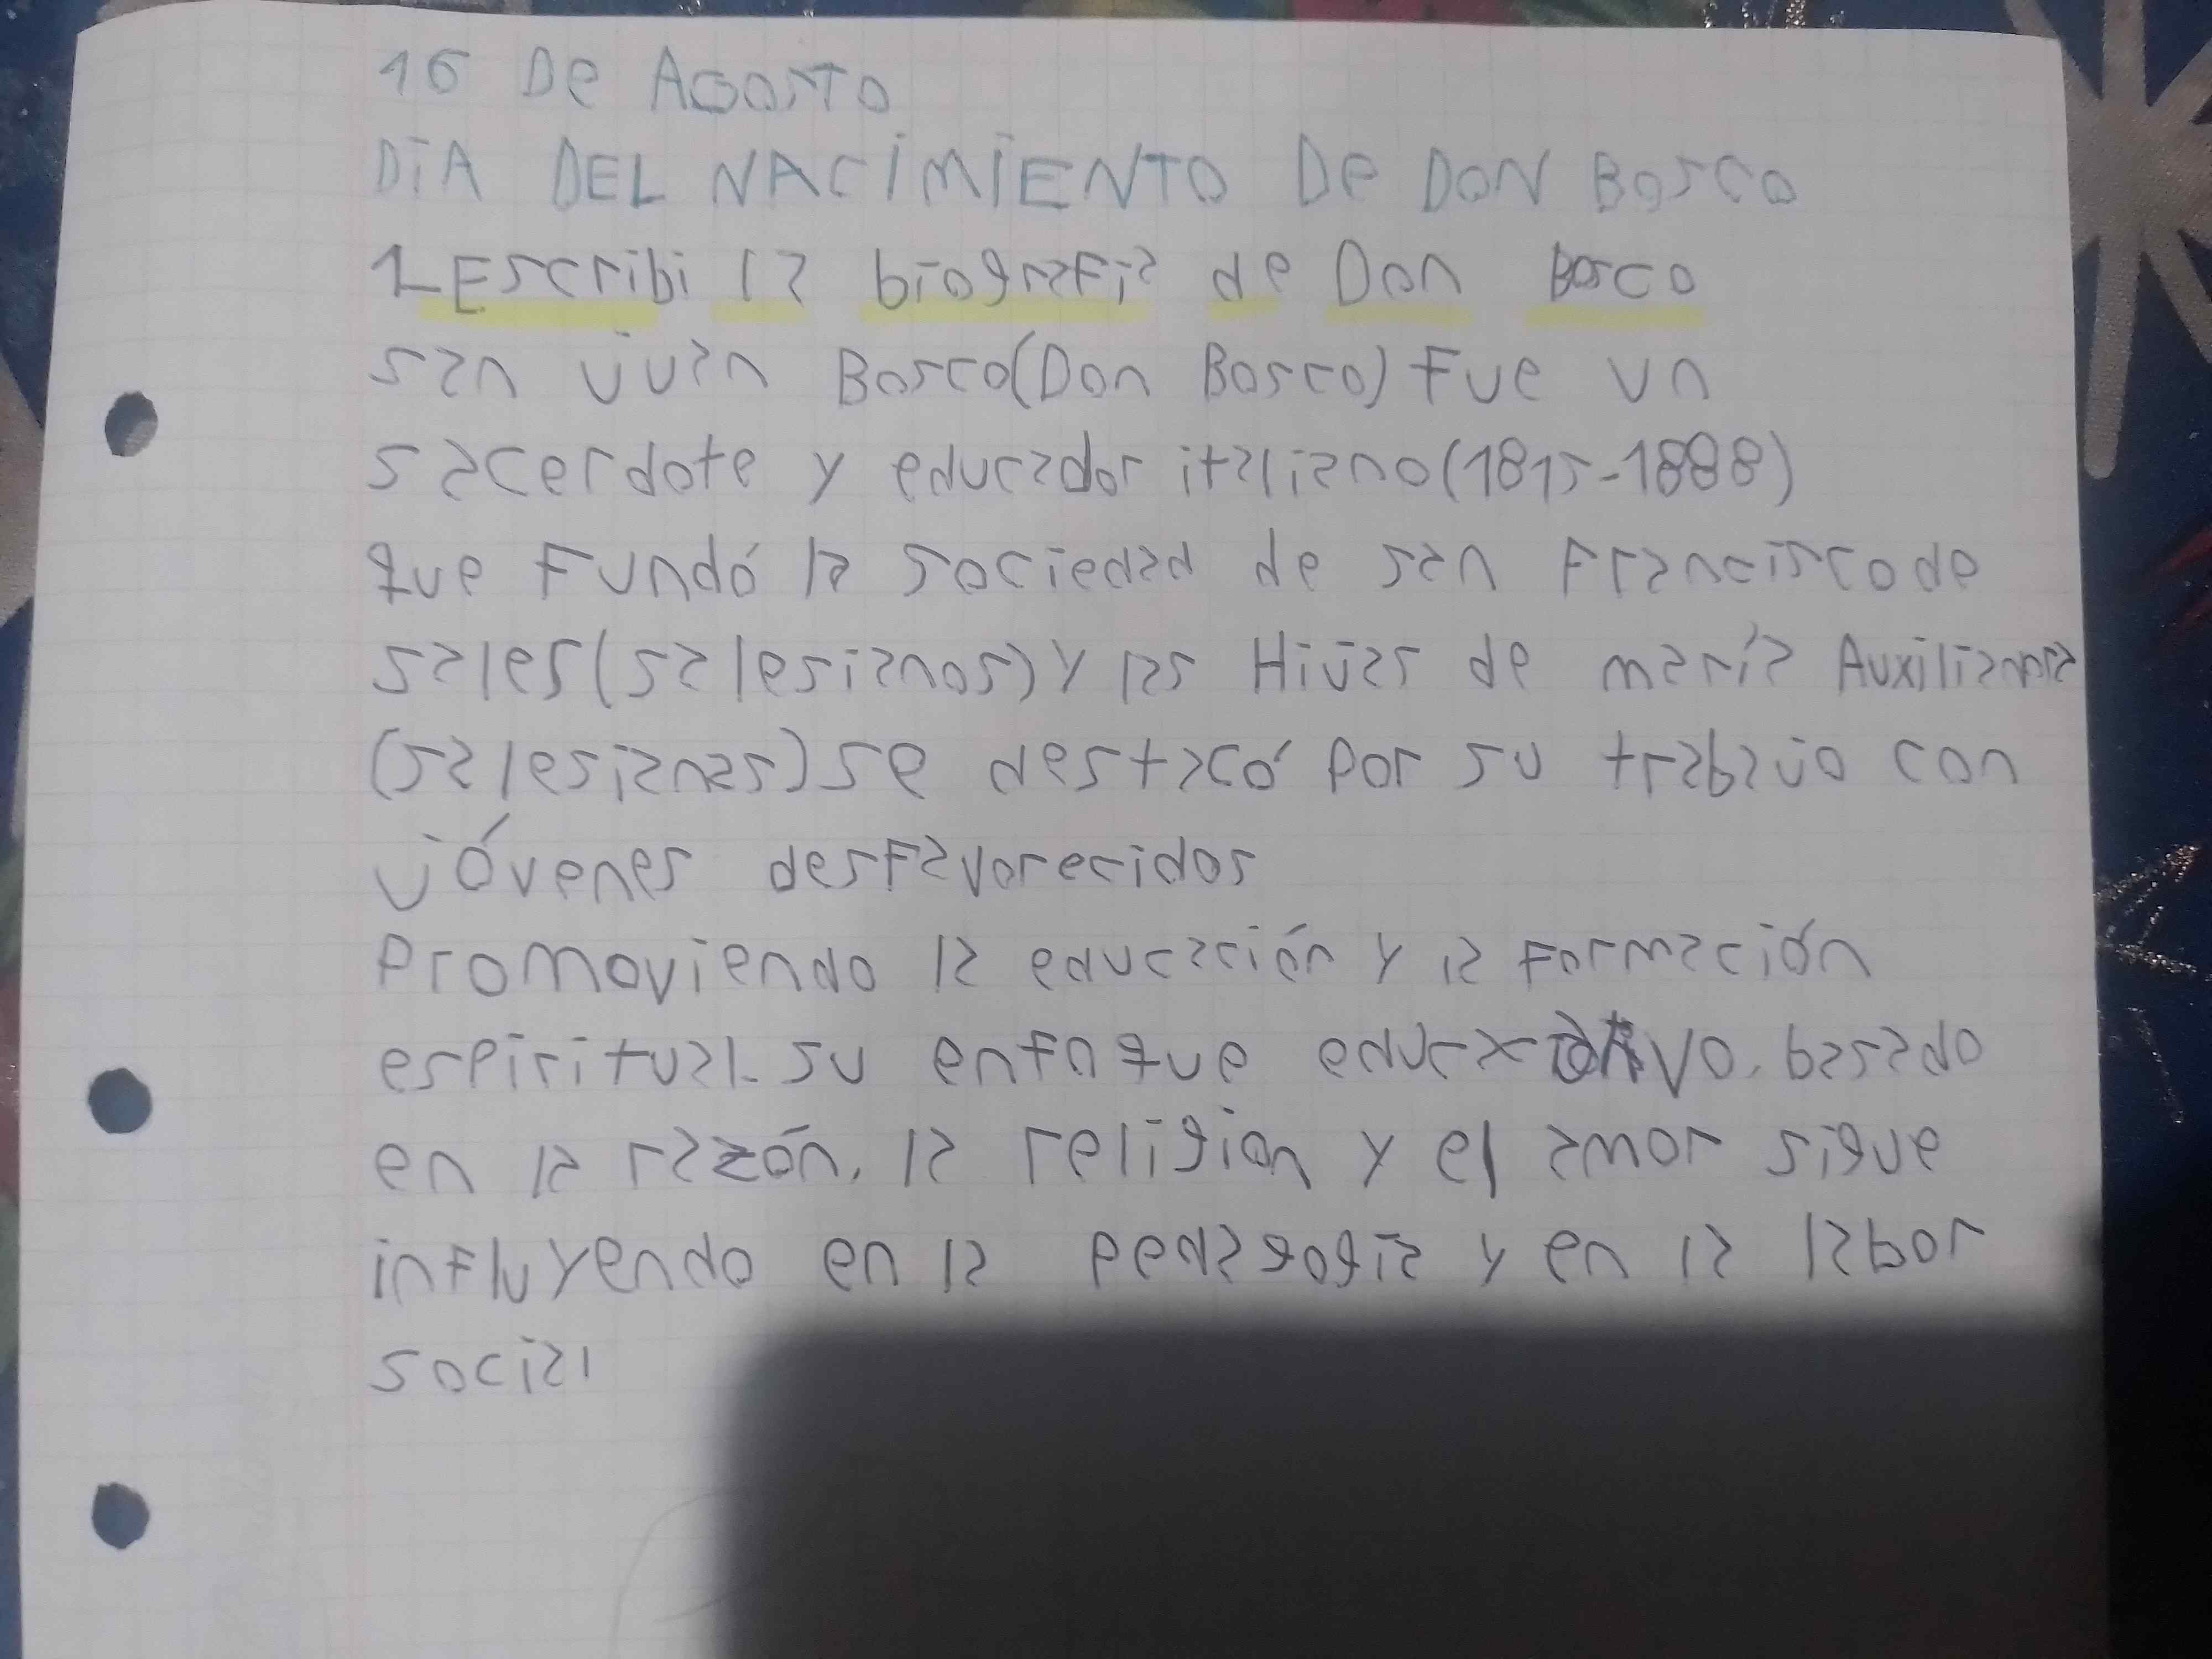 16 De AGOSTO
DiA DEL NACiMiENTO De DON BOSCO
1-Escribi la biografia de Don Bosco
san juan Bosco(Don Bosco) Fue un
sacerdote y educador italiano(1815-1888)
que Fundó la sociedad de san Francisco de
sales(salesianos) y las Hijas de maría Auxiliadora
(salesianas) se destacó por su trabajo con
jóvenes desfavorecidos
Promoviendo la educación y la Formación
espiritual. su enfoque educativo. basado
en la razón. la religion y el amor sigue
influyendo en la pedagogia y en la labor
social